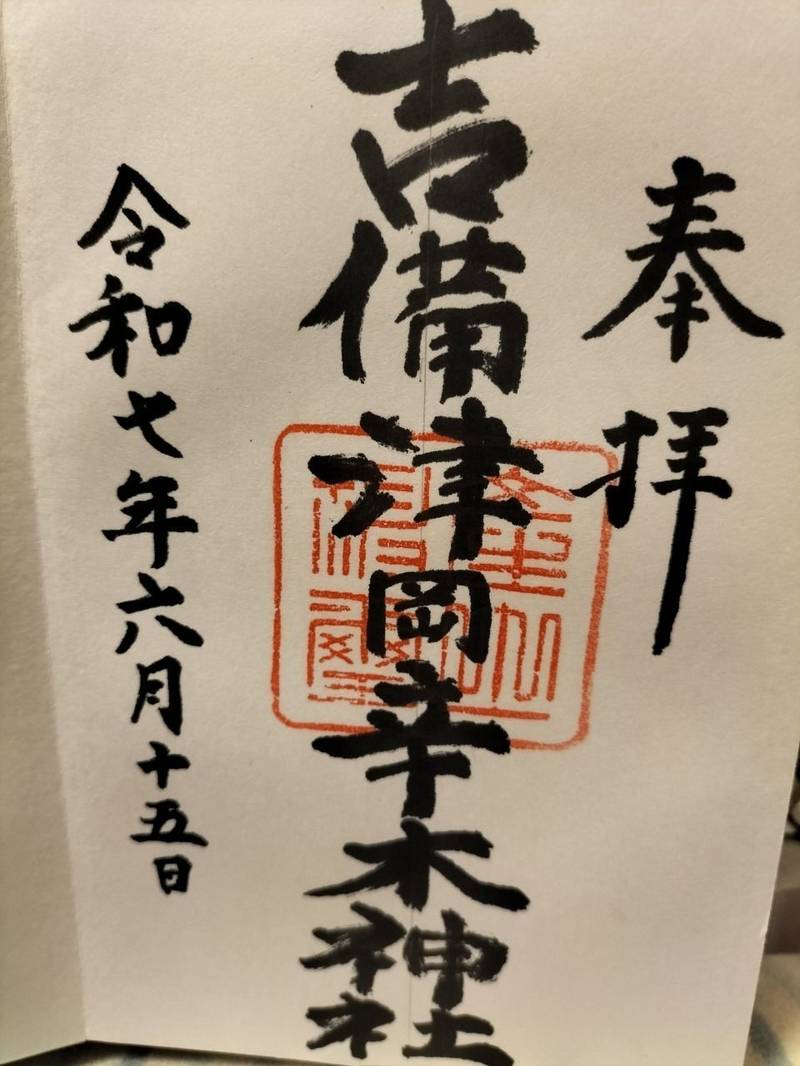 奉拝
吉備津岡辛木神社
令和七年六月十五日